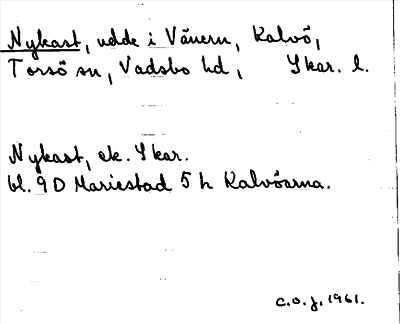 Nykast, udde i Vänern, Kalvö,
Torsö sn, Vadsbo hd, Skar. l.
Nykast, ek. Skar.
bl. 9D Mariestad 5 h Kalvöarna.
C.O.J. 1961.